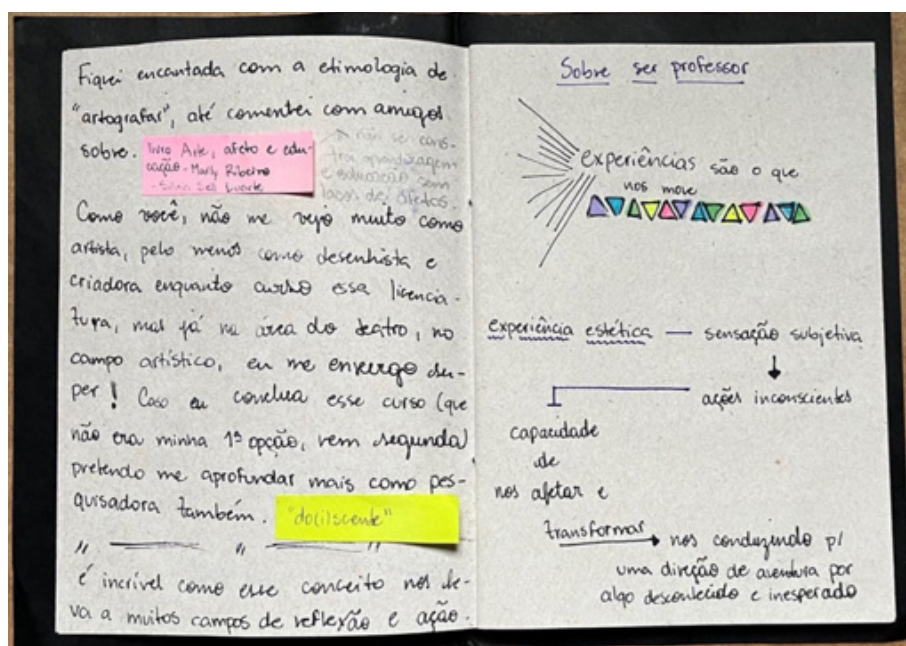 Fiquei encantada com a etimologia de
"artografar", até comentei com amigos
sobre.
livro Arte, afeto e edu-
cação - Marly Ribeiro
↗ não se cons-
trói aprendizagem
e educação sem
laços de afetos.
Como você, não me vejo muito como
artista, pelo menos como desenhista e
criadora enquanto curso essa licencia-
tura, mas já na área do teatro, no
campo artístico, eu me enxergo su-
per! Caso eu conclua esse curso (que
não era minha 1ª opção, nem segunda)
pretendo me aprofundar mais como pes-
quisadora também.
"do(i)scente"
" — " — "
é incrível como esse conceito nos le-
va a muitos campos de reflexão e ação.
Sobre ser professor
experiências são o que
nos move
experiência estética — sensação subjetiva
ações inconscientes
capacidade
de
nos afetar e
transformar → nos conduzindo p/
uma direção de aventura por
algo desconhecido e inesperado